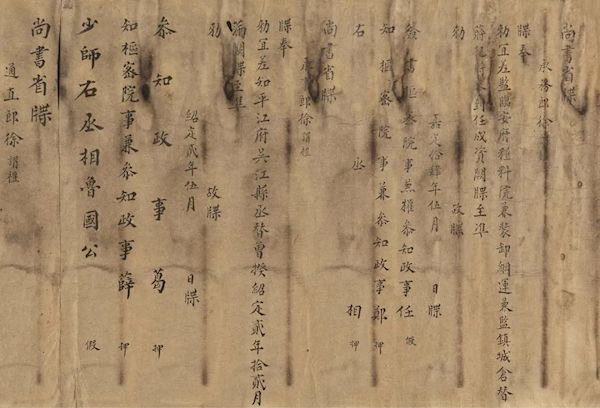 尚書省牒
承務郎徐謂禮
牒奉
勑宜差監臨安府糧料院兼裝卸綱運兼監鎮城倉替
到任成資闕牒至準
勑 故牒
嘉定拾肆年伍月 日牒
簽書樞密院事兼權參知政事任 假
知樞密院事兼參知政事鄭 押
右丞相 押
尚書省牒
承 郎徐謂禮
牒奉
勑宜差知平江府吳江縣丞替曹揆紹定貳年拾貳月
滿闕牒至準
勑 故牒
紹定貳年伍月 日牒
參知政事葛 押
知樞密院事兼參知政事薛 押
少師右丞相魯國公 假
尚書省牒
通直郎徐謂禮